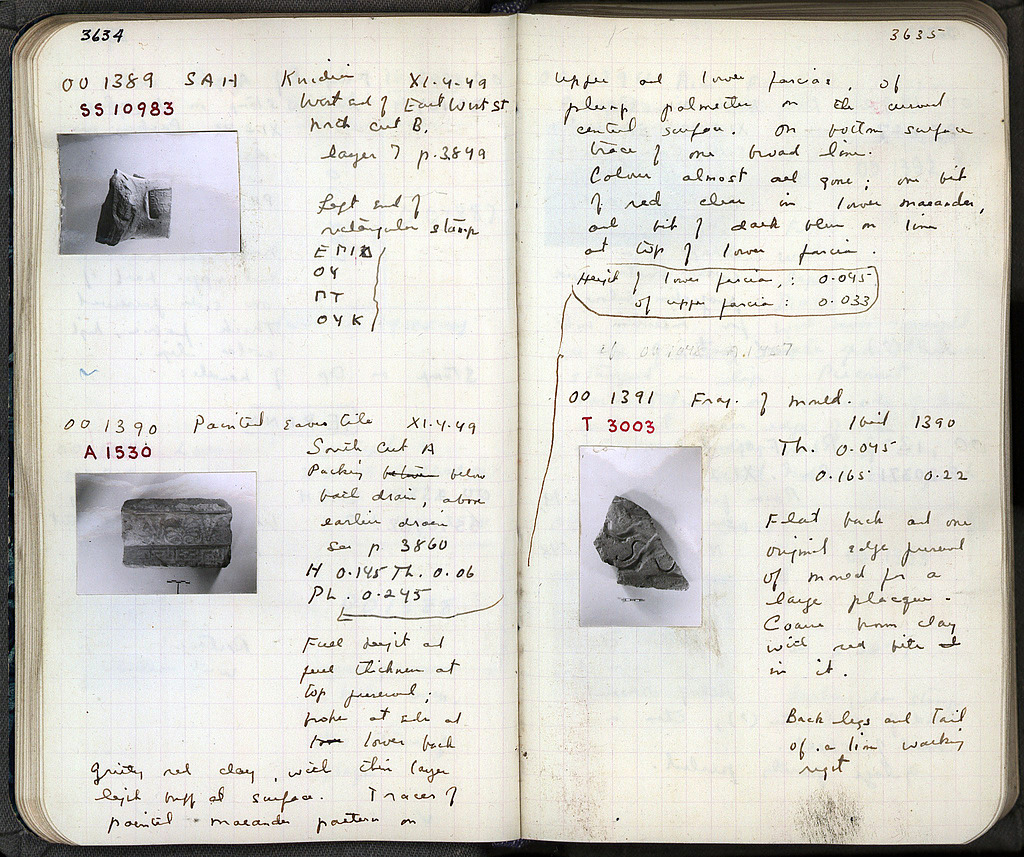 3634
OO 1389 SAH Knidian XI·4·49
SS 10983
West end of East West St
north cut B.
layer 7 p.3849
Left end of
rectangular stamp
ΕΠΙΔ
ΟΥ
ΠΤ
ΟΥΚ
OO 1390 Painted Eaves tile XI·4·49
A 1530
South Cut A
Packing below
tail drain, above
earlier drain
See p 3860
H 0.145 Th. 0.06
PL. 0.245
Full height and
full thickness at
top preserved;
broken at side and
lower back
Gritty red clay, with thin layer
light buff at surface. Traces of
painted maeander pattern on
3635
upper and lower fascias, of
plump palmettes on the curved
central surface. On bottom surface
trace of one broad line.
Colour almost all gone; one bit
of red clear in lower maeander,
and bit of dark blue on line
at top of lower fascia.
Height of lower fascia: 0.045
of upper fascia: 0.033
cf
OO 1391 Frag. of mould.
T 3003
1390
Th. 0.045
0.165 0.22
Flat back and one
original edge preserved
of mould for a
large placque.
Coarse brown clay
with red bits
in it.
Back legs and Tail
of a lion walking
right